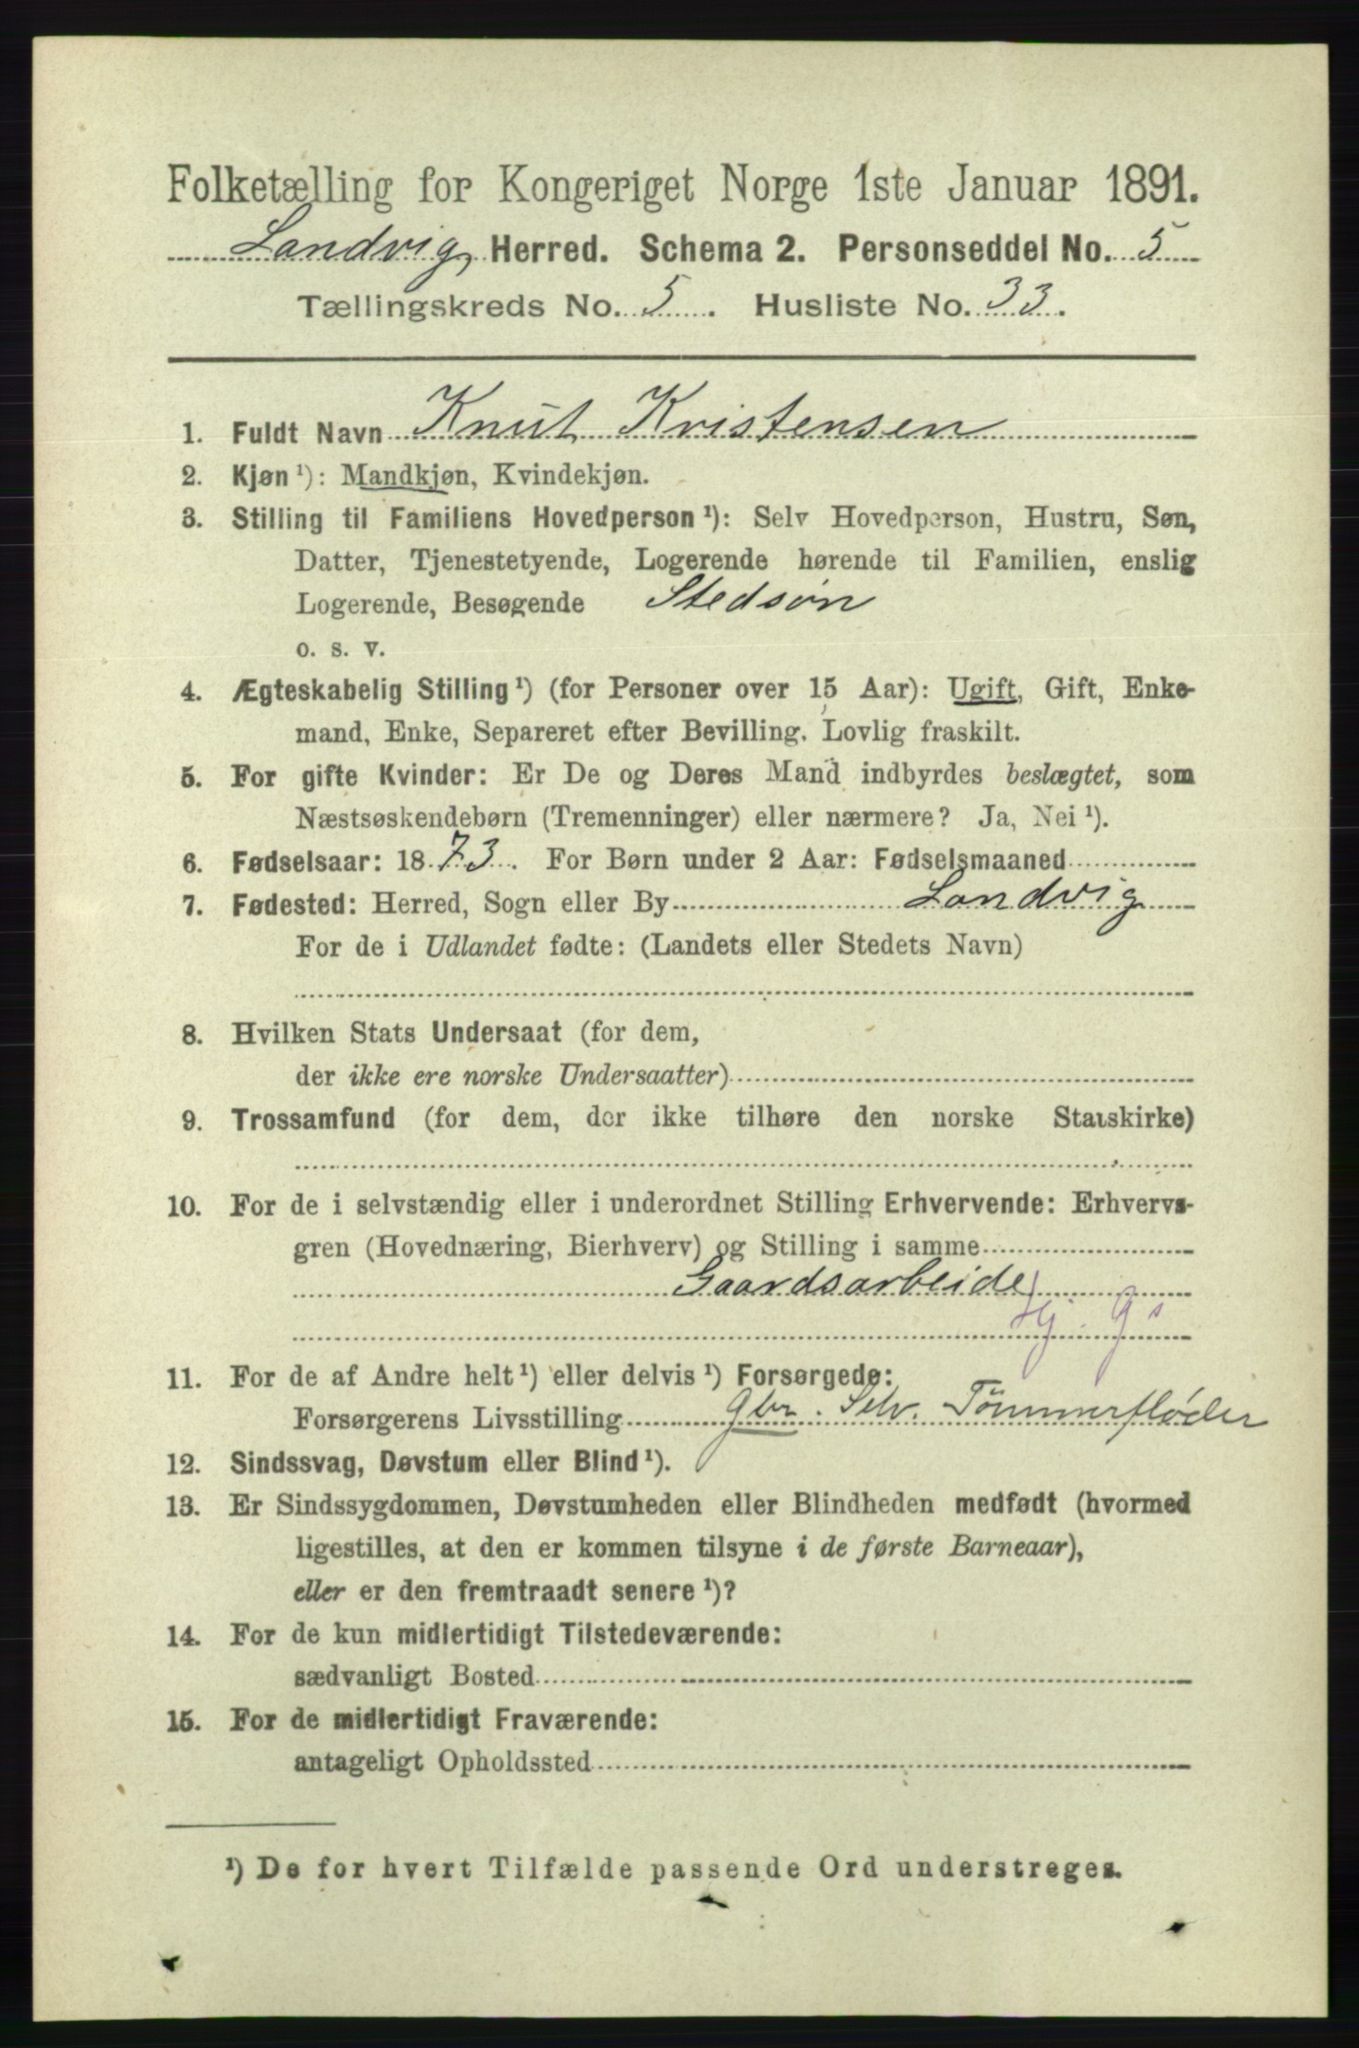 Folketælling for Kongeriget Norge 1ste Januar 1891.
Landvig Herred. Schema 2. Personseddel No. 5
Tællingskreds No. 5. Husliste No. 33.
1. Fuldt Navn Knut Kristensen
2. Kjøn¹): Mandkjøn, Kvindekjøn.
3. Stilling til Familiens Hovedperson¹): Selv Hovedperson, Hustru, Søn,
Datter, Tjenestetyende, Logerende hørende til Familien, enslig
Logerende, Besøgende Stedsøn
o. s. v.
4. Ægteskabelig Stilling¹) (for Personer over 15 Aar): Ugift, Gift, Enke-
mand, Enke, Separeret efter Bevilling. Lovlig fraskilt.
5. For gifte Kvinder: Er De og Deres Mand indbyrdes beslægtet, som
Næstsøskendebørn (Tremenninger) eller nærmere? Ja, Nei¹).
6. Fødselsaar: 1873. For Børn under 2 Aar: Fødselsmaaned
7. Fødested: Herred, Sogn eller By Landvig
For de i Udlandet fødte: (Landets eller Stedets Navn)
8. Hvilken Stats Undersaat (for dem,
der ikke ere norske Undersaatter)
9. Trossamfund (for dem, der ikke tilhøre den norske Statskirke)
10. For de i selvstændig eller i underordnet Stilling Erhvervende: Erhvervs-
gren (Hovednæring, Bierhverv) og Stilling i samme
Gaardsarbeide
Hj. Gs
11. For de af Andre helt¹) eller delvis¹) Forsørgede:
Forsørgerens Livsstilling Gbr. Selv. Tömmerfløder
12. Sindssvag, Døvstum eller Blind¹).
13. Er Sindssygdommen, Døvstumheden eller Blindheden medfødt (hvormed
ligestilles, at den er kommen tilsyne i de første Barneaar),
eller er den fremtraadt senere¹)?
14. For de kun midlertidigt Tilstedeværende:
sædvanligt Bosted
15. For de midlertidigt Fraværende:
antageligt Opholdssted
¹) De for hvert Tilfælde passende Ord understreges.